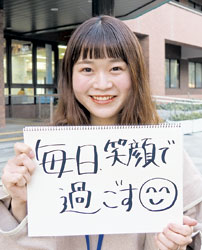 毎日、笑顔で
過ごす